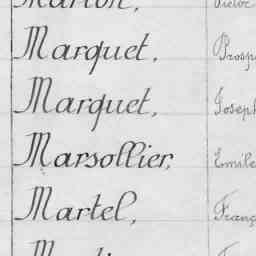 Marion, Victor
Marquet, Prosp
Marquet, Joseph
Marsollier, Emile
Martel, Franç